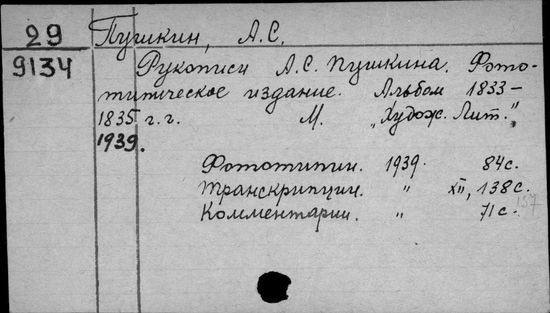 29 Пушкин, А.С.
9134 Рукописи А.С. Пушкина. Фото-
типическое издание. Альбом 1833-
1835 г.г. М. „Худож. Лит.",
1939.
Фототипии. 1939. 84 с.
Транскрипции. " XII, 138 с.
Комментарии. " 71 с.
157